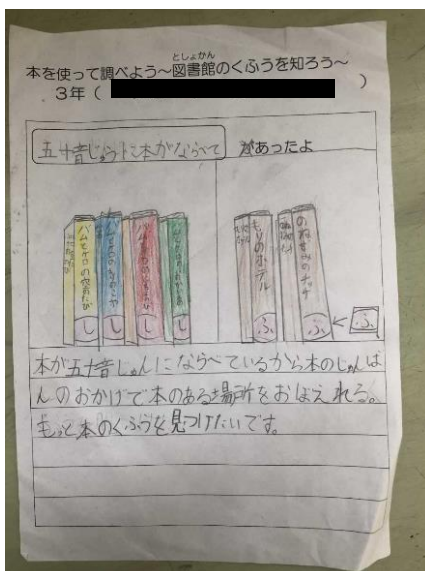 としょかん
本を使って調べよう～図書館のくふうを知ろう～
3年（ ）
五十音じゅんに本がならべて
があったよ
バムとケロの空のたび
し
し
し
し
もりのホテル
のねずみのチッチ
ふ
ふ
ふ
本が五十音じゅんにならべているから本のじゅんば
んのおかげで本のある場所をおぼえれる。
もっと本のくふうを見つけたいです。